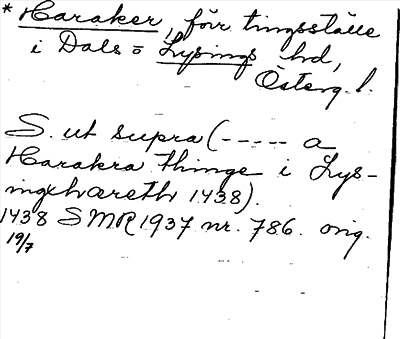 * Haraker, förr tingsställe
i Dals o Lysings hd,
Österg. l.
S. ut supra (----- a
Harakra thinge i Lys-
ingxhæreth 1438).
1438 SMR 1937 nr. 786. orig.
19/7